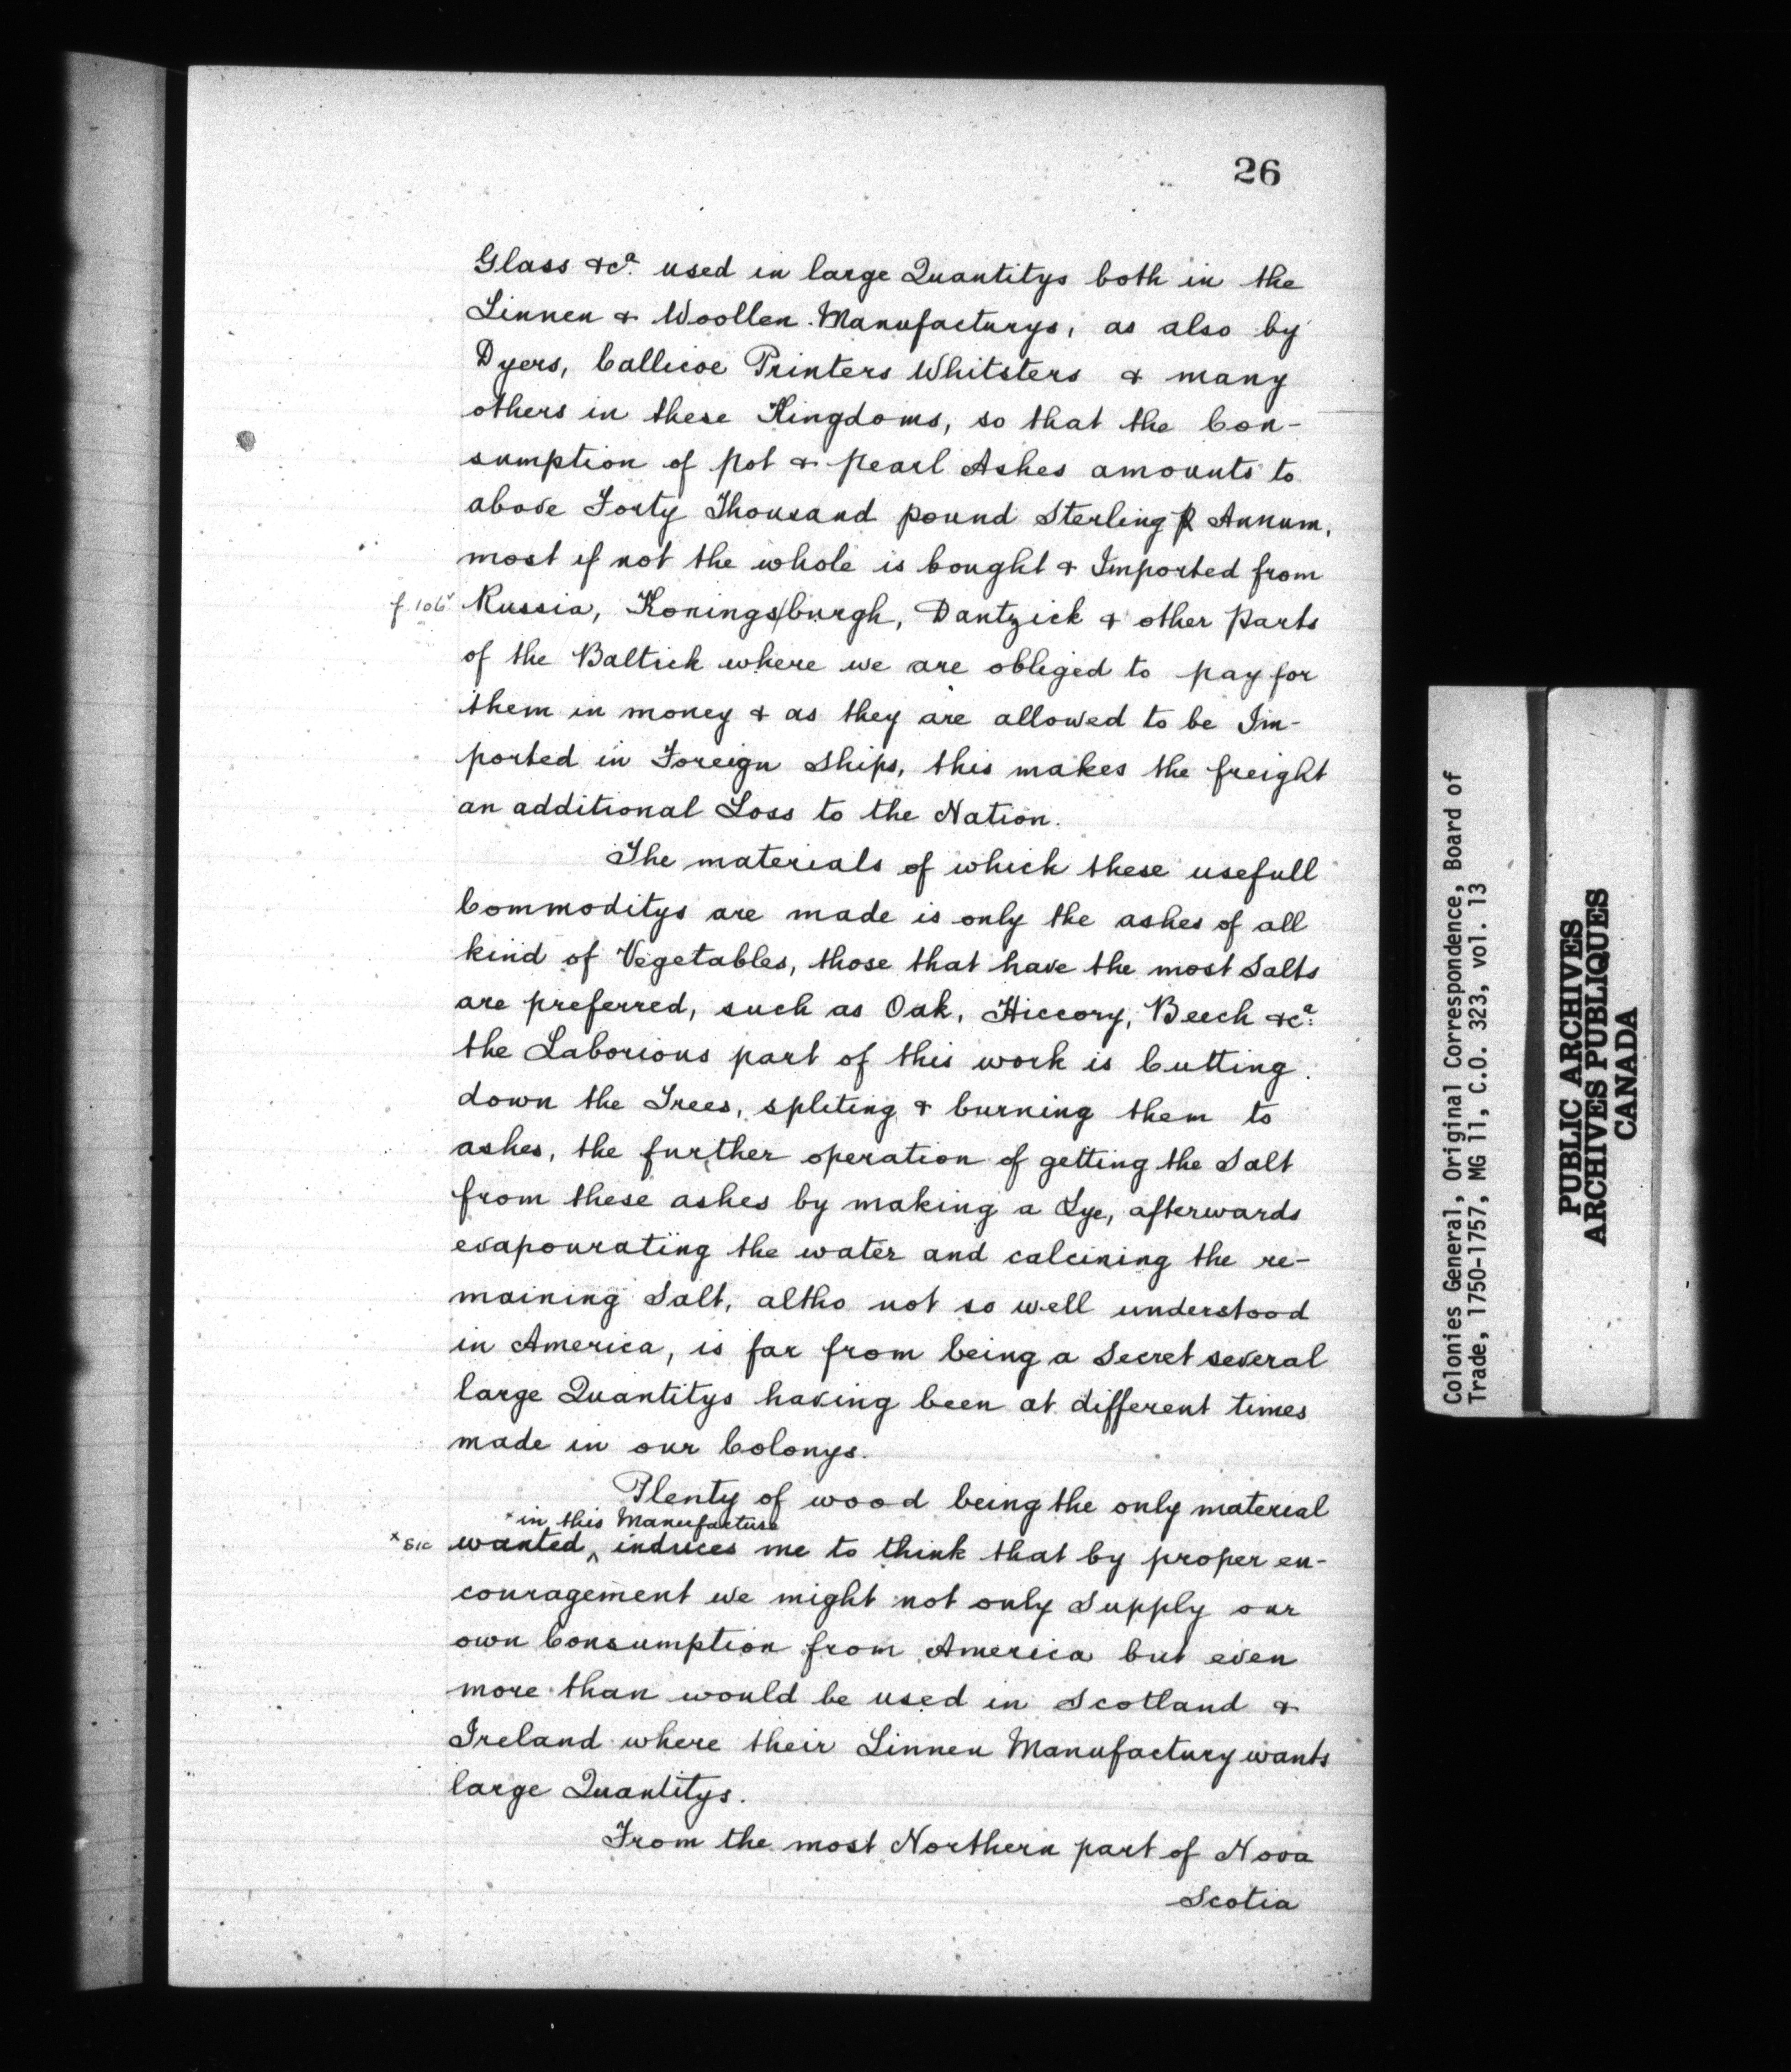 26
Glass &cª. used in large Quantitys both in the
Linnen & Woollen Manufacturys, as also by
Dyers, Callicoe Printers Whitsters & many
others in these Kingdoms, so that the Con-
sumption of pot & pearl Ashes amounts to
above Forty Thousand pound Sterling ⅌ Annum,
most if not the whole is bought & Imported from
f. 106ᵛ Russia, Konings/burgh, Dantzick & other Parts
of the Baltick where we are obliged to pay for
them in money & as they are allowed to be Im-
ported in Foreign Ships, this makes the freight
an additional Loss to the Nation.
The materials of which these usefull
Commoditys are made is only the ashes of all
kind of Vegetables, those that have the most Salts
are preferred, such as Oak, Hiccory, Beech &cª:
the Laborious part of this work is Cutting
down the Trees, spliting & burning them to
ashes, the further operation of getting the Salt
from these ashes by making a Lye, afterwards
evapourating the water and calcining the re-
maining Salt, altho not so well understood
in America, is far from being a Secret several
large Quantitys having been at different times
made in our Colonys.
Plenty of wood being the only material
ˣin this Manufacture
ˣ sic wanted ‸ induces me to think that by proper en-
couragement we might not only Supply our
own Consumption from America but even
more than would be used in Scotland &
Ireland where their Linnen Manufactury wants
large Quantitys.
From the most Northern part of Nova
Scotia
Colonies General, Original Correspondence, Board of
Trade, 1750-1757, MG 11, C.O. 323, vol. 13
PUBLIC ARCHIVES
ARCHIVES PUBLIQUES
CANADA